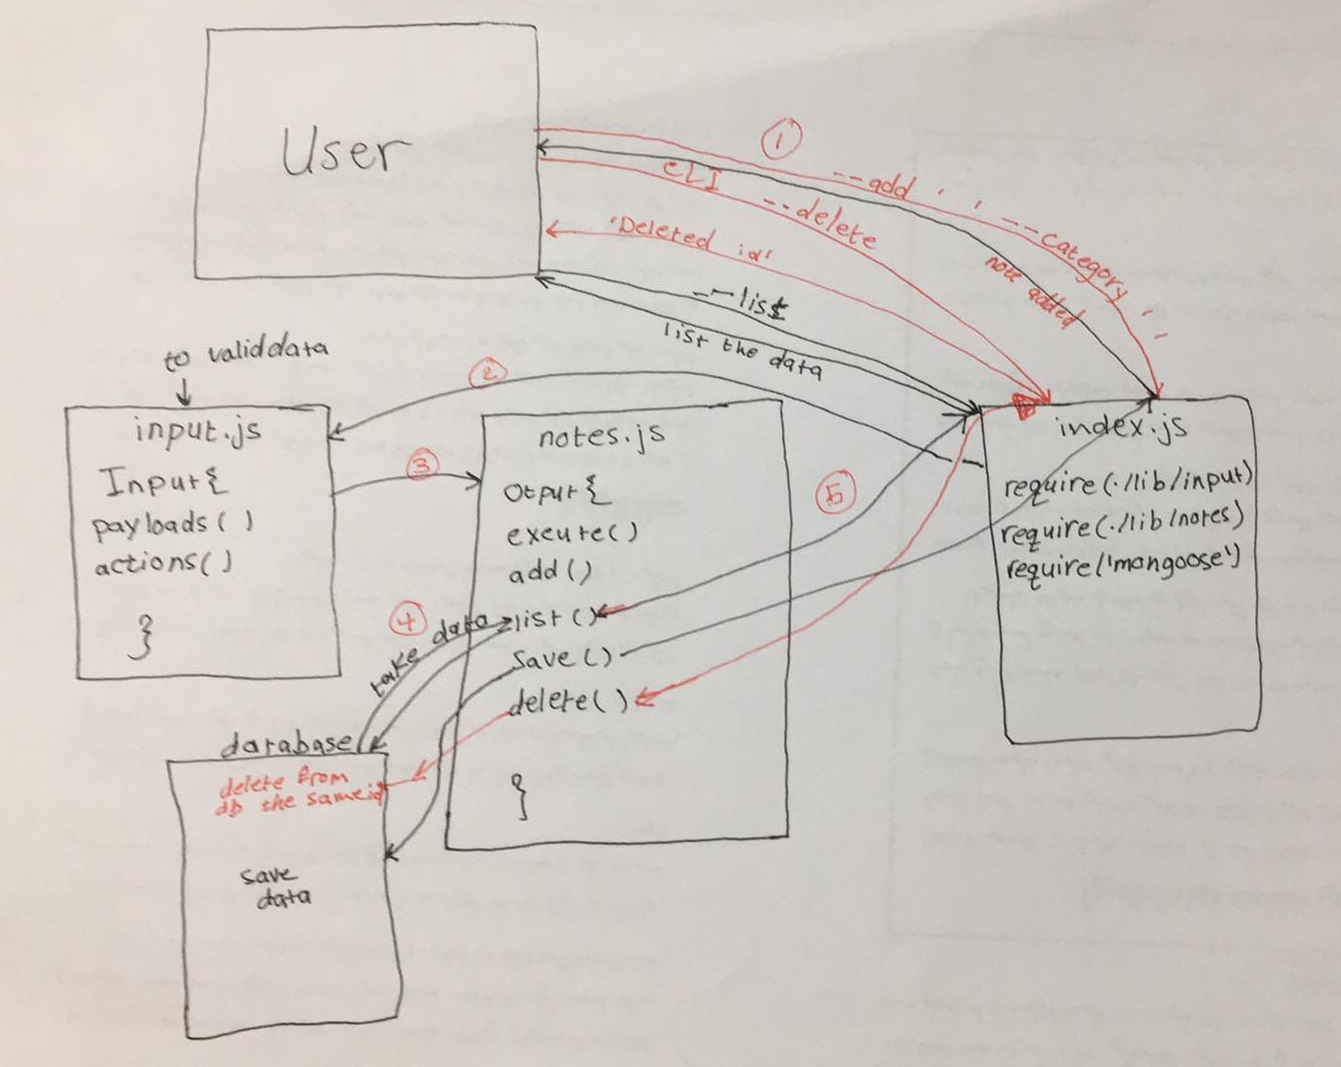 User
1
--add ' , --category ' '
CLI --delete
note added
'Deleted id'
--list
list the data
to validdata
2
input.js
Input{
payloads()
actions()
}
3
notes.js
Otput{
exeute()
add()
list()
Save()
delete()
}
5
index.js
require(./lib/input)
require(./lib/notes)
require('mongoose')
4
take data
darabase
delete from
db the same id
save
data